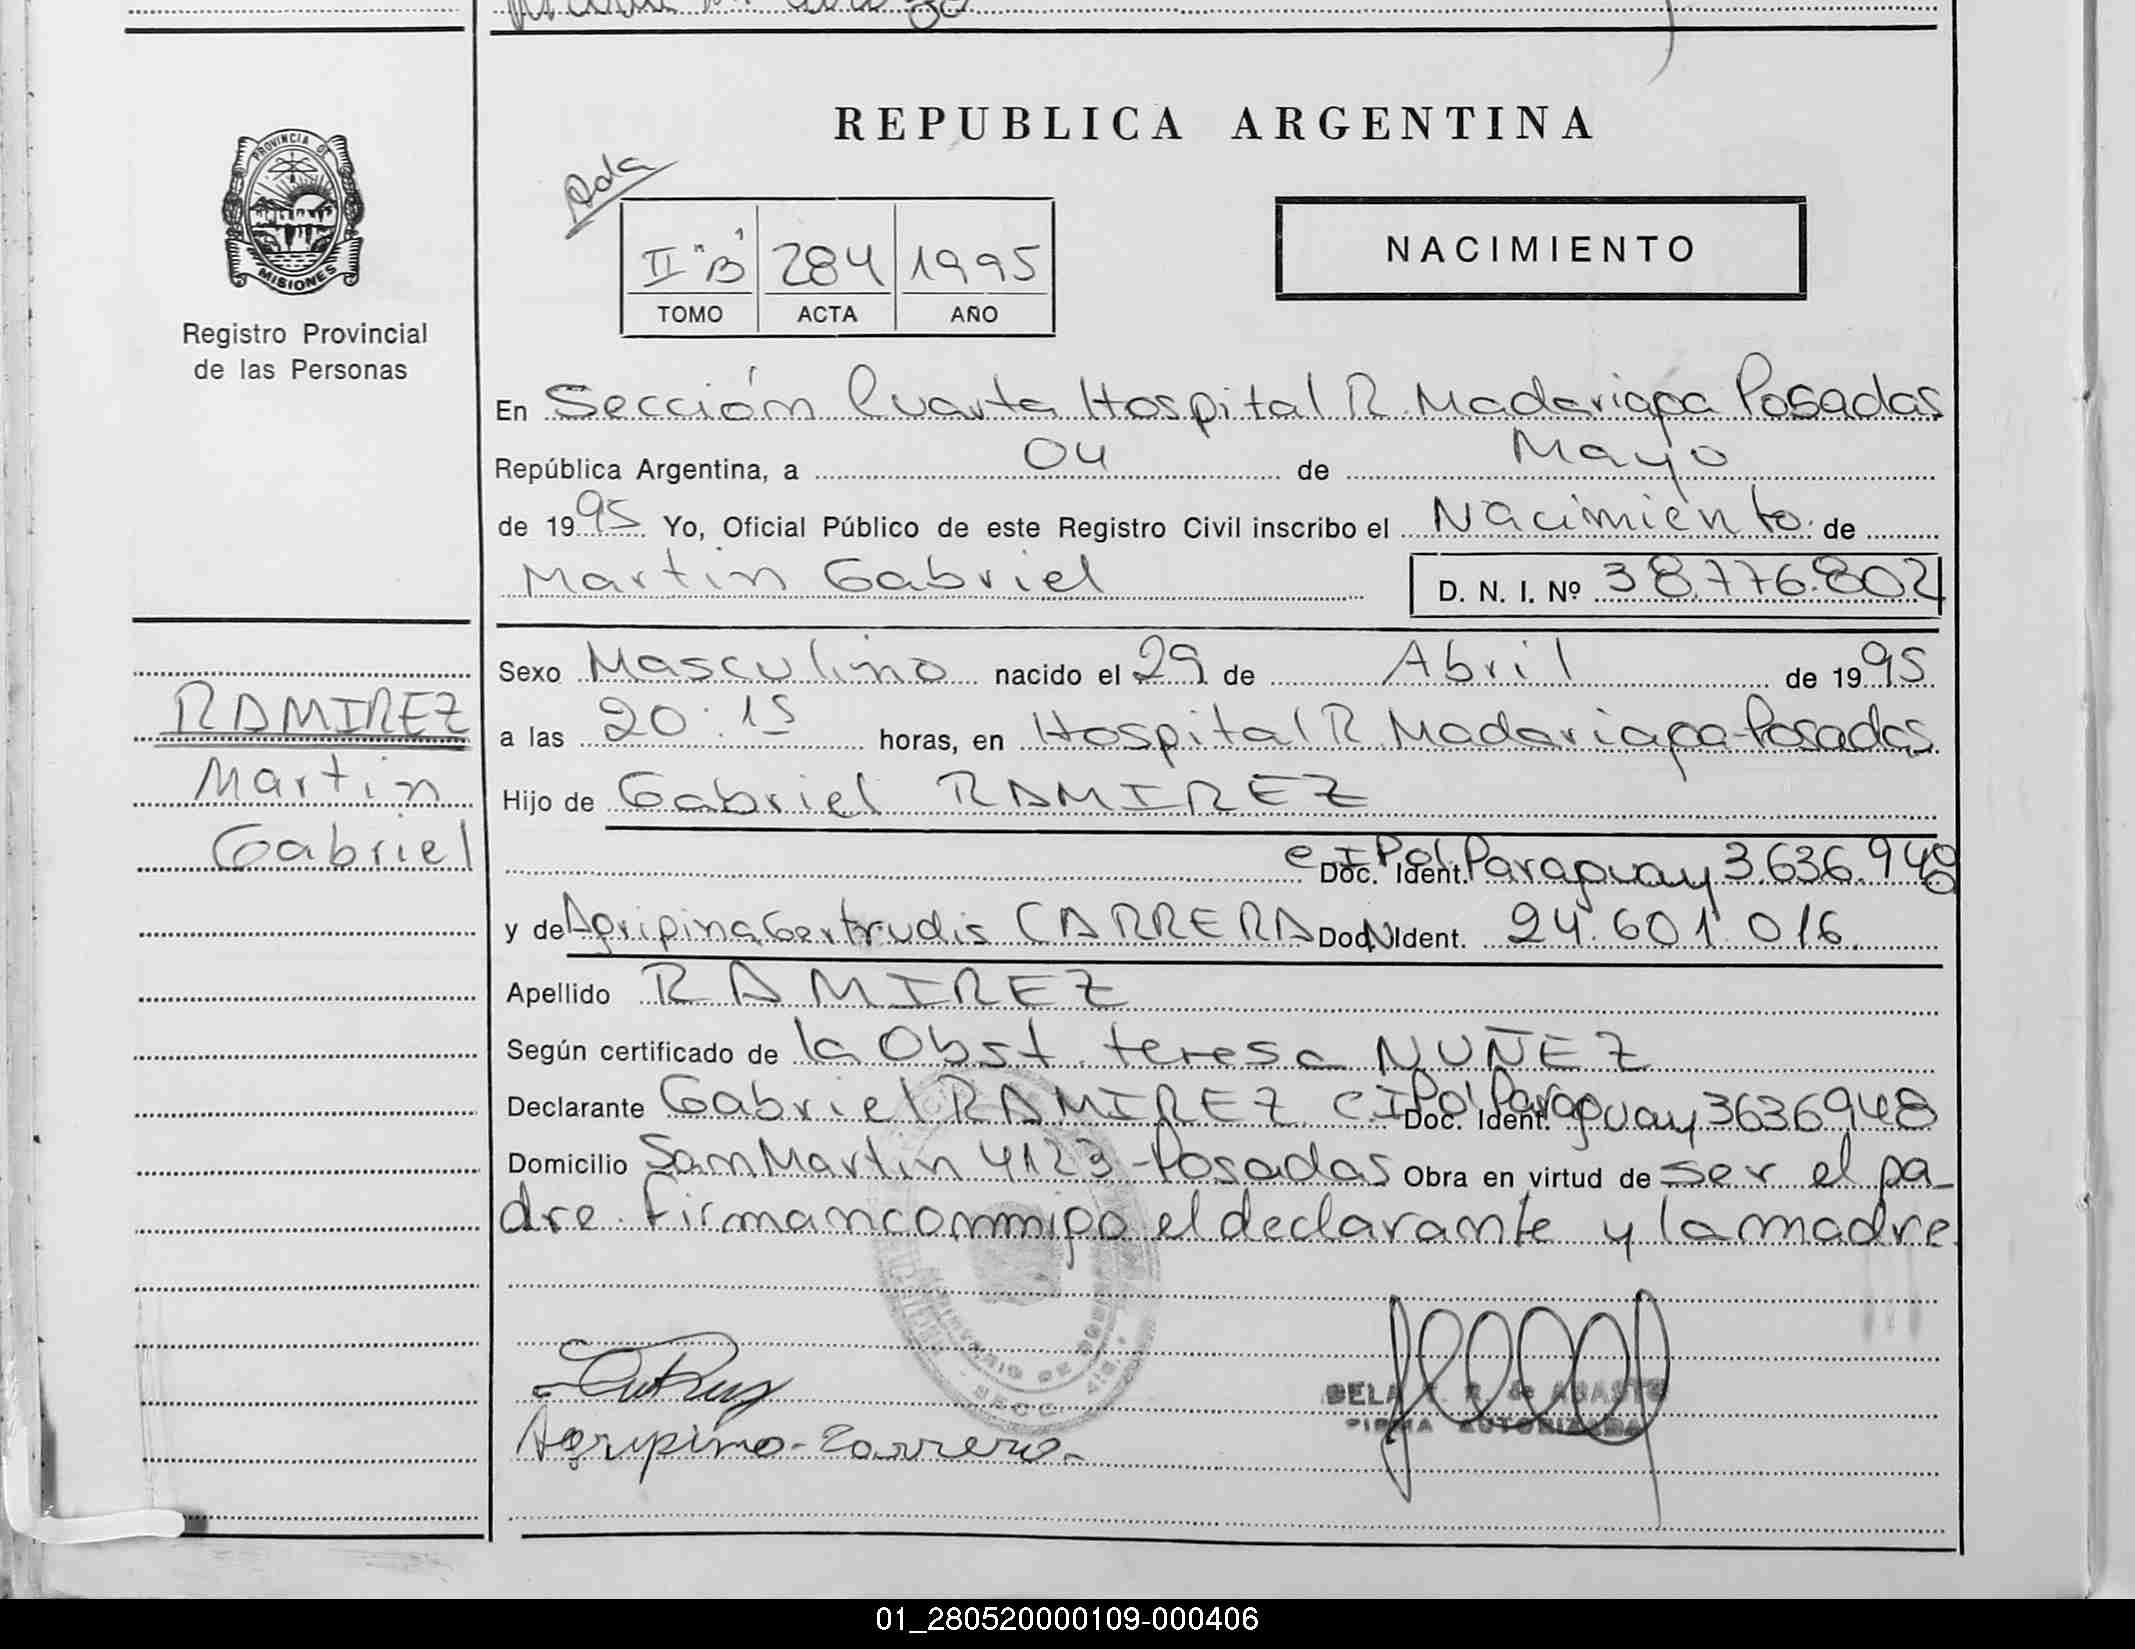 REPUBLICA ARGENTINA
PROVINCIA DE
MISIONES
Registro Provincial
de las Personas
Ada
II "B" 284 1995
TOMO ACTA AÑO
NACIMIENTO
En Sección Cuarta Hospital R. Madariaga Posadas
República Argentina, a 04 de Mayo
de 1995 Yo, Oficial Público de este Registro Civil inscribo el Nacimiento de
Martin Gabriel D. N. I. Nº 38.776.802
Sexo Masculino nacido el 29 de Abril de 1995
a las 20:15 horas, en Hospital R. Madariaga-Posadas
Hijo de Gabriel RAMIREZ
Doc. Ident. C I Pol. Paraguay 3.636.948
y de Agripina Gertrudis CARRERA Doc. N Ident. 24.601.016
Apellido RAMIREZ
Según certificado de la Obst. teresa NUÑEZ
Declarante Gabriel RAMIREZ Doc. Ident. C I Pol Paraguay 3636948
Domicilio San Martin 4123-Posadas Obra en virtud de ser el pa-
dre. Firman conmigo el declarante y la madre.
RAMIREZ
Martin
Gabriel
Agripina Carrera
DELA R. de
FIRMA AUTORIZADA
01_280520000109-000406